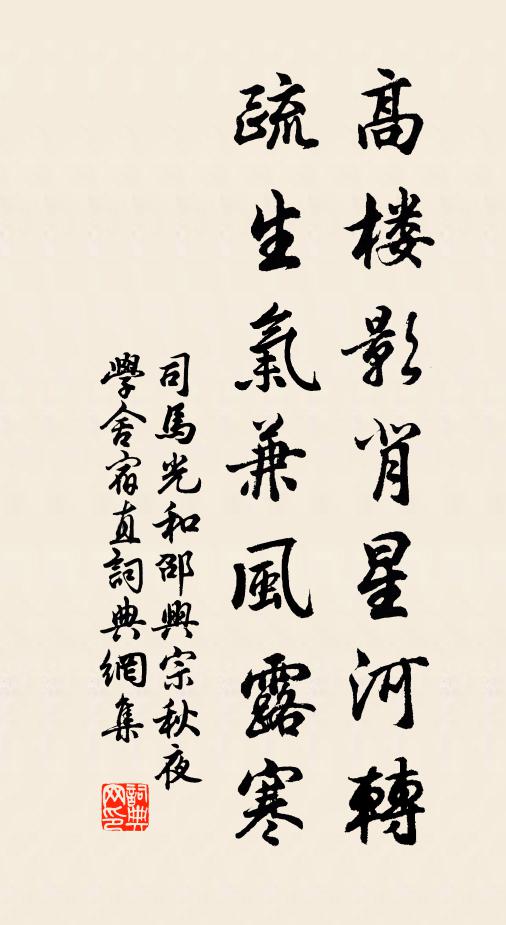 高楼影背星河轉
疏生氣兼風露寒
司馬光和邵興宗秋夜
學舍宿直詞典網集
詞典
网印